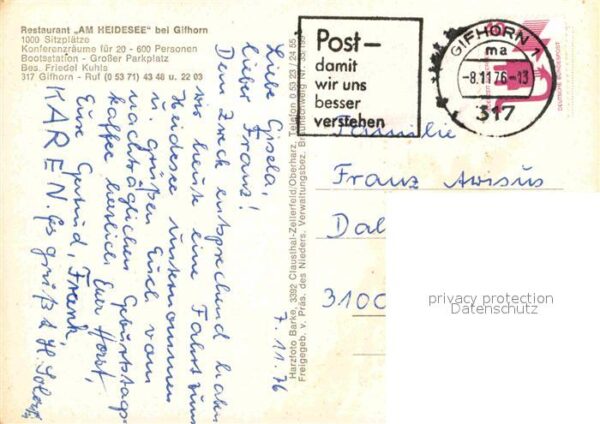 Restaurant „AM HEIDESEE" bei Gifhorn
1000 Sitzplätze
Konferenzräume für 20 - 600 Personen
Bootsstation - Großer Parkplatz
Bes. Friedel Kuhls
317 Gifhorn - Ruf (0 53 71) 43 48 u. 22 03
7.11.76
Liebe Gisela,
lieber Franz!
Dem Zweck entsprechend haben
wir heute eine Fahrt zum
Heidesee unternommen
u. grüßen Euch vom
nachträglichen Geburtstags-
kaffee herzlich Euer Horst,
Eure Gertrud, Frank,
KAREN. Es grüßt H.
Harzfoto Barke, 3392 Clausthal-Zellerfeld/Oberharz, Telefon 0 53 23 / 24 55
Freigegeben v. Präs. des Nieders. Verwaltungsbez. Braunschweig Nr.
Post—
damit
wir uns
besser
verstehen
GIFHORN 1
ma
-8.11.76-13
317
DEUTSCHE BUNDESPOST
Familie
Franz
Dal
3100
privacy protection
Datenschutz